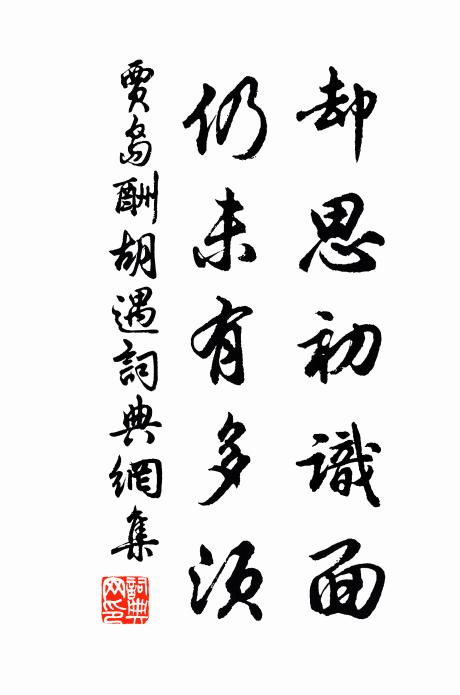 却思初識面
仍未有多須
賈島酬胡遇詞典網集
詞典網印